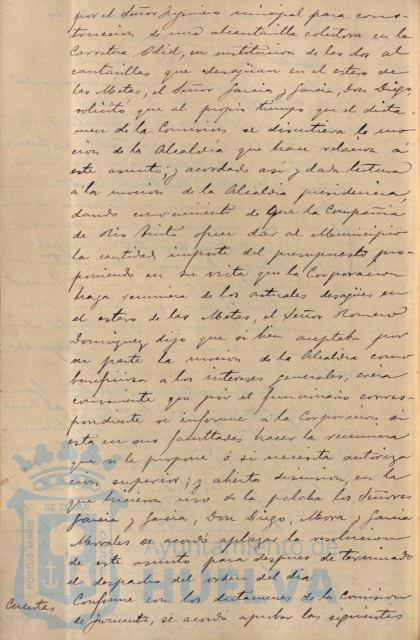 por el Señor Ingeniero municipal para cons-
truccion de una alcantarilla colectora en la
Carretera Odiel, en sustitucion de las dos al
cantarillas que desagüan en el estero de
las Metas, el Señor Garcia y Garcia, Don Diego,
solicitó que al propio tiempo que el dicta-
men de la Comision se discutiera la mo-
cion de la Alcaldia que hace relacion á
este asunto; y acordado asi y dada lectura
á la mocion de la Alcaldia presidencia,
dando conocimiento de que la Compañia
de Rio Tinto ofrece dar al Municipio
la cantidad importe del presupuesto pro-
poniendo en su vista que la Corporacion
haga renuncia de los actuales desagües en
el estero de las Metas, el Señor Romero
Dominguez dijo que si bien aceptaba por
su parte la mocion de la Alcaldia como
beneficiosa á los intereses generales, creia
conveniente que por el funcionario corres-
pondiente se informe á la Corporacion si
está en sus facultades hacer la renuncia
que se le propone ó si necesita autoriza
cion superior; y abierta discusion, en la
que hicieron uso de la palabra los Señores
Garcia y Garcia, Don Diego, Mora y Garcia
Morales se acordó aplazar la resolucion
de este asunto para despues de terminado
el despacho del orden del dia
Cuentas Conforme con los dictamenes de la Comision
de Fomento, se acordó aprobar las siguientes
PORTUS MARIS
Ayuntamiento de
HUELVA